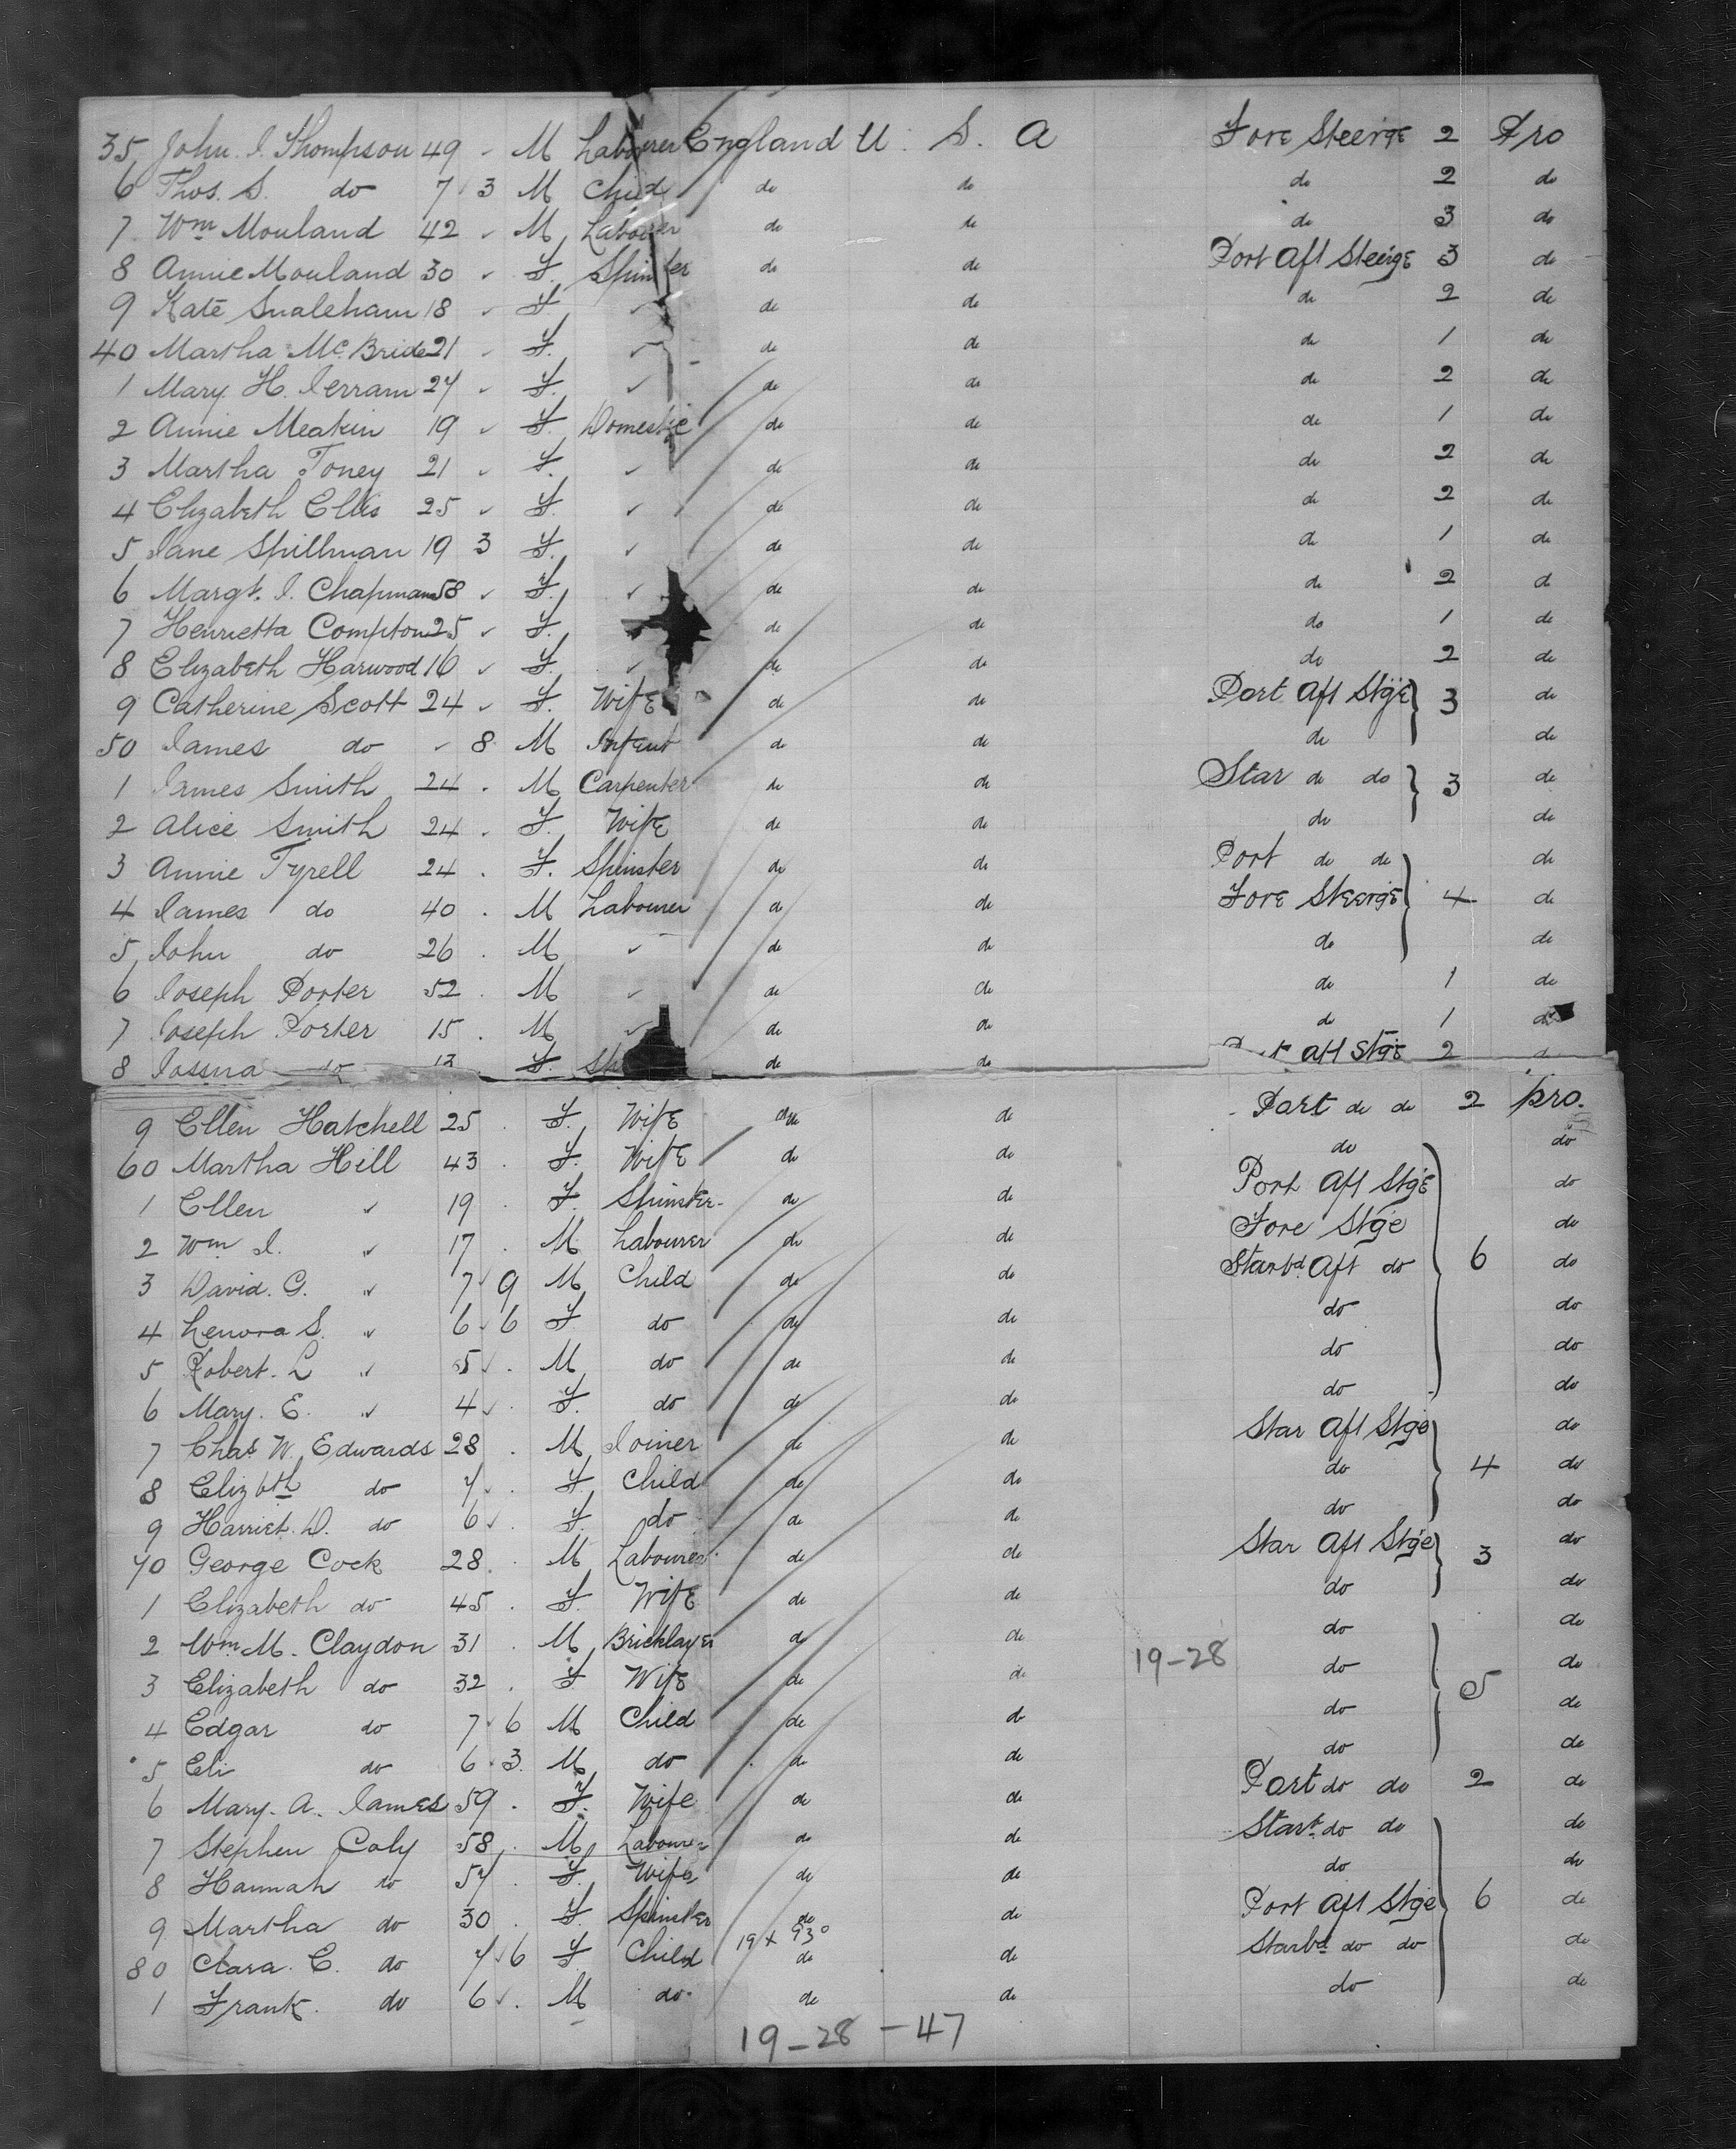 35 John. I. Thompson 49 - M Labourer England U. S. A Fore Steerge 2 Pro
6 Thos. S. do 7 3 M Child do do do 2 do
7 Wm Mouland 42 M Labourer do do do 3 do
8 Annie Mouland 30 F. Spinster do do Port Aft Steerge 3 do
9 Kate Snaleham 18 F ✓ do do do 2 do
40 Martha Mc Bride 21 F. ✓ do do do 1 do
1 Mary. H. Jerram 24 F. ✓ do do do 2 do
2 Annie Meakin 19 F. Domestic do do do 1 do
3 Martha Toney 21 F. ✓ do do do 2 do
4 Elizabeth Ellis 25 F. ✓ do do do 2 do
5 Jane Spillman 19 3 F. ✓ do do do 1 do
6 Margt. I. Chapman 58 F. ✓ do do do 2 do
7 Henrietta Compton 25 F. do do do 1 do
8 Elizabeth Harwood 16 F. ✓ do do do 2 do
9 Catherine Scott 24 F. Wife do do Port Aft Stge 3 do
50 James do 8 M Infant do do do do
1 James Smith 24 . M Carpenter do do Star do do 3 do
2 Alice Smith 24 . F. Wife do do do do
3 Annie Tyrell 24 . F. Spinster do do Port do do do
4 James do 40 . M Labourer do do Fore Steerge 4 do
5 John do 26 . M ✓ do do do do
6 Joseph Porter 52 . M ✓ do do do 1 do
7 Joseph Porter 15 . M ✓ do do do 1 do
8 do 13 F. do do Aft Stge 2
9 Ellen Hatchell 25 . F. Wife do do Port do do 2 pro.
60 Martha Hill 43 . F. Wife do do do do
1 Ellen ✓ 19 . F. Spinster do do Port Aft Stge do
2 Wm I. ✓ 17 . M Labourer do do Fore Stge do
3 David. G. ✓ 7 9 M Child do do Starbd. Aft do 6 do
4 Lenora S. ✓ 6 6 F do do do do do
5 Robert. L ✓ 5 . M do do do do do
6 Mary. E. ✓ 4 . F. do do do do do
7 Chas W. Edwards 28 . M Joiner do do Star Aft Stge do
8 Elizbth do 7 . F Child do do do 4 do
9 Harriet. D. do 6 . F. do do do do do
70 George Cock 28 . M Labourer do do Star Aft Stge 3 do
1 Elizabeth do 45 . F. Wife do do do do
2 Wm. M. Claydon 31 . M Bricklayer do do do do
19-28
3 Elizabeth do 32 . F Wife do do do 5 do
4 Edgar do 7 6 M Child do do do do
5 Eli do 6 3 M do do do do do
6 Mary. A. James 59 . F. Wife do do Port do do 2 do
7 Stephen Coly 58 . M Labourer do do Star. do do do
8 Hannah do 57 . F. Wife do do do do
9 Martha do 30 . F. Spinster do do Port Aft Stge 6 do
19 + 93°
80 Clara. C. do 7 6 F Child do do Starbd do do do
1 Frank. do 6 . M do do do do do
19-28-47